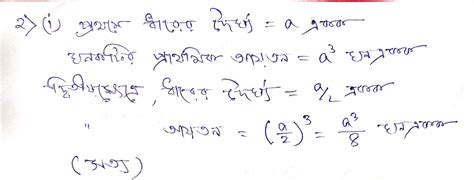 ২> (i) প্রথমে ধারের দৈর্ঘ্য = a একক
ঘনকটির প্রাথমিক আয়তন = a³ ঘন একক
দ্বিতীয়ক্ষেত্রে, ধারের দৈর্ঘ্য = a/2 একক
" আয়তন = (a/2)³ = a³/8 ঘন একক
(সত্য)